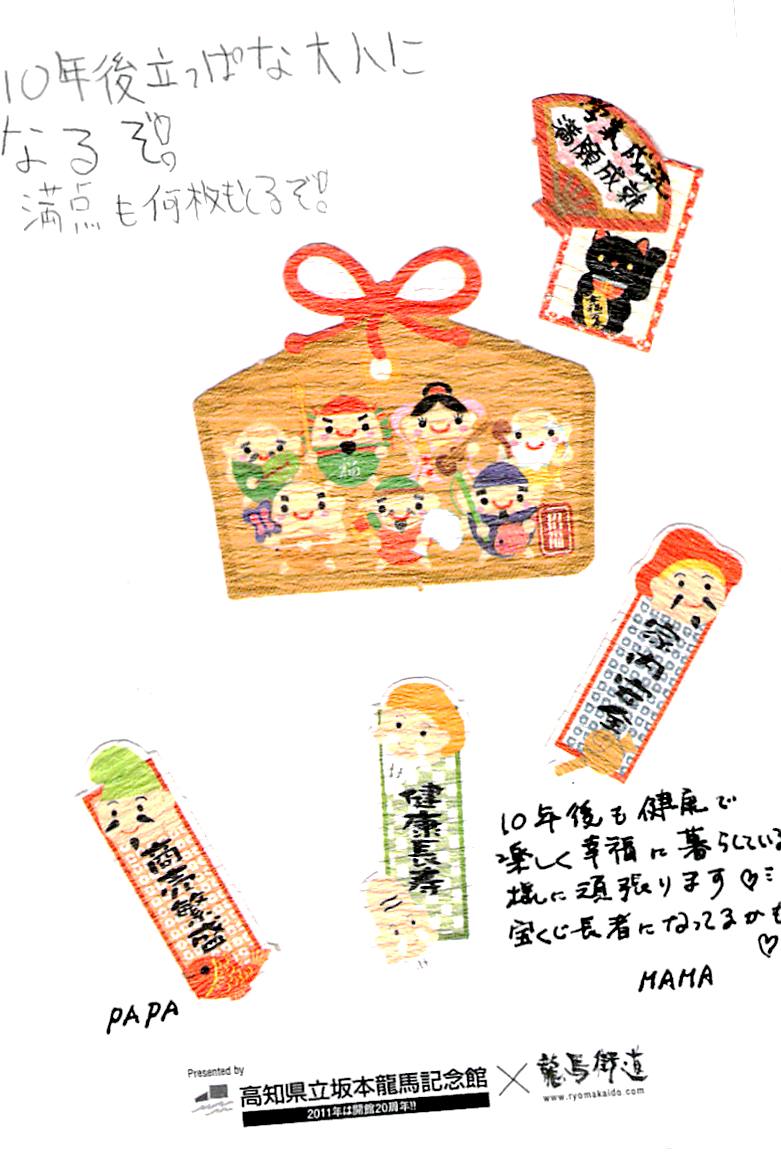 10年後立っぱな大人に
なるぞ!
満点も何枚もとるぞ!
学業成就
満願成就
福
招福
家内安全
健康長寿
商売繁盛
10年後も健康で
楽しく幸福に暮らしている
様に頑張ります♡
宝くじ長者になってるかも
♡
MAMA
PAPA
Presented by
高知県立坂本龍馬記念館×龍馬街道
2011年は開館20周年!!
www.ryomakaido.com